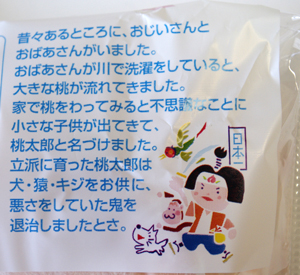 昔々あるところに、おじいさんと
おばあさんがいました。
おばあさんが川で洗濯をしていると、
大きな桃が流れてきました。
家で桃をわってみると不思議なことに
小さな子供が出てきて、
桃太郎と名づけました。
立派に育った桃太郎は
犬・猿・キジをお供に、
悪さをしていた鬼を
退治しましたとさ。
日本一